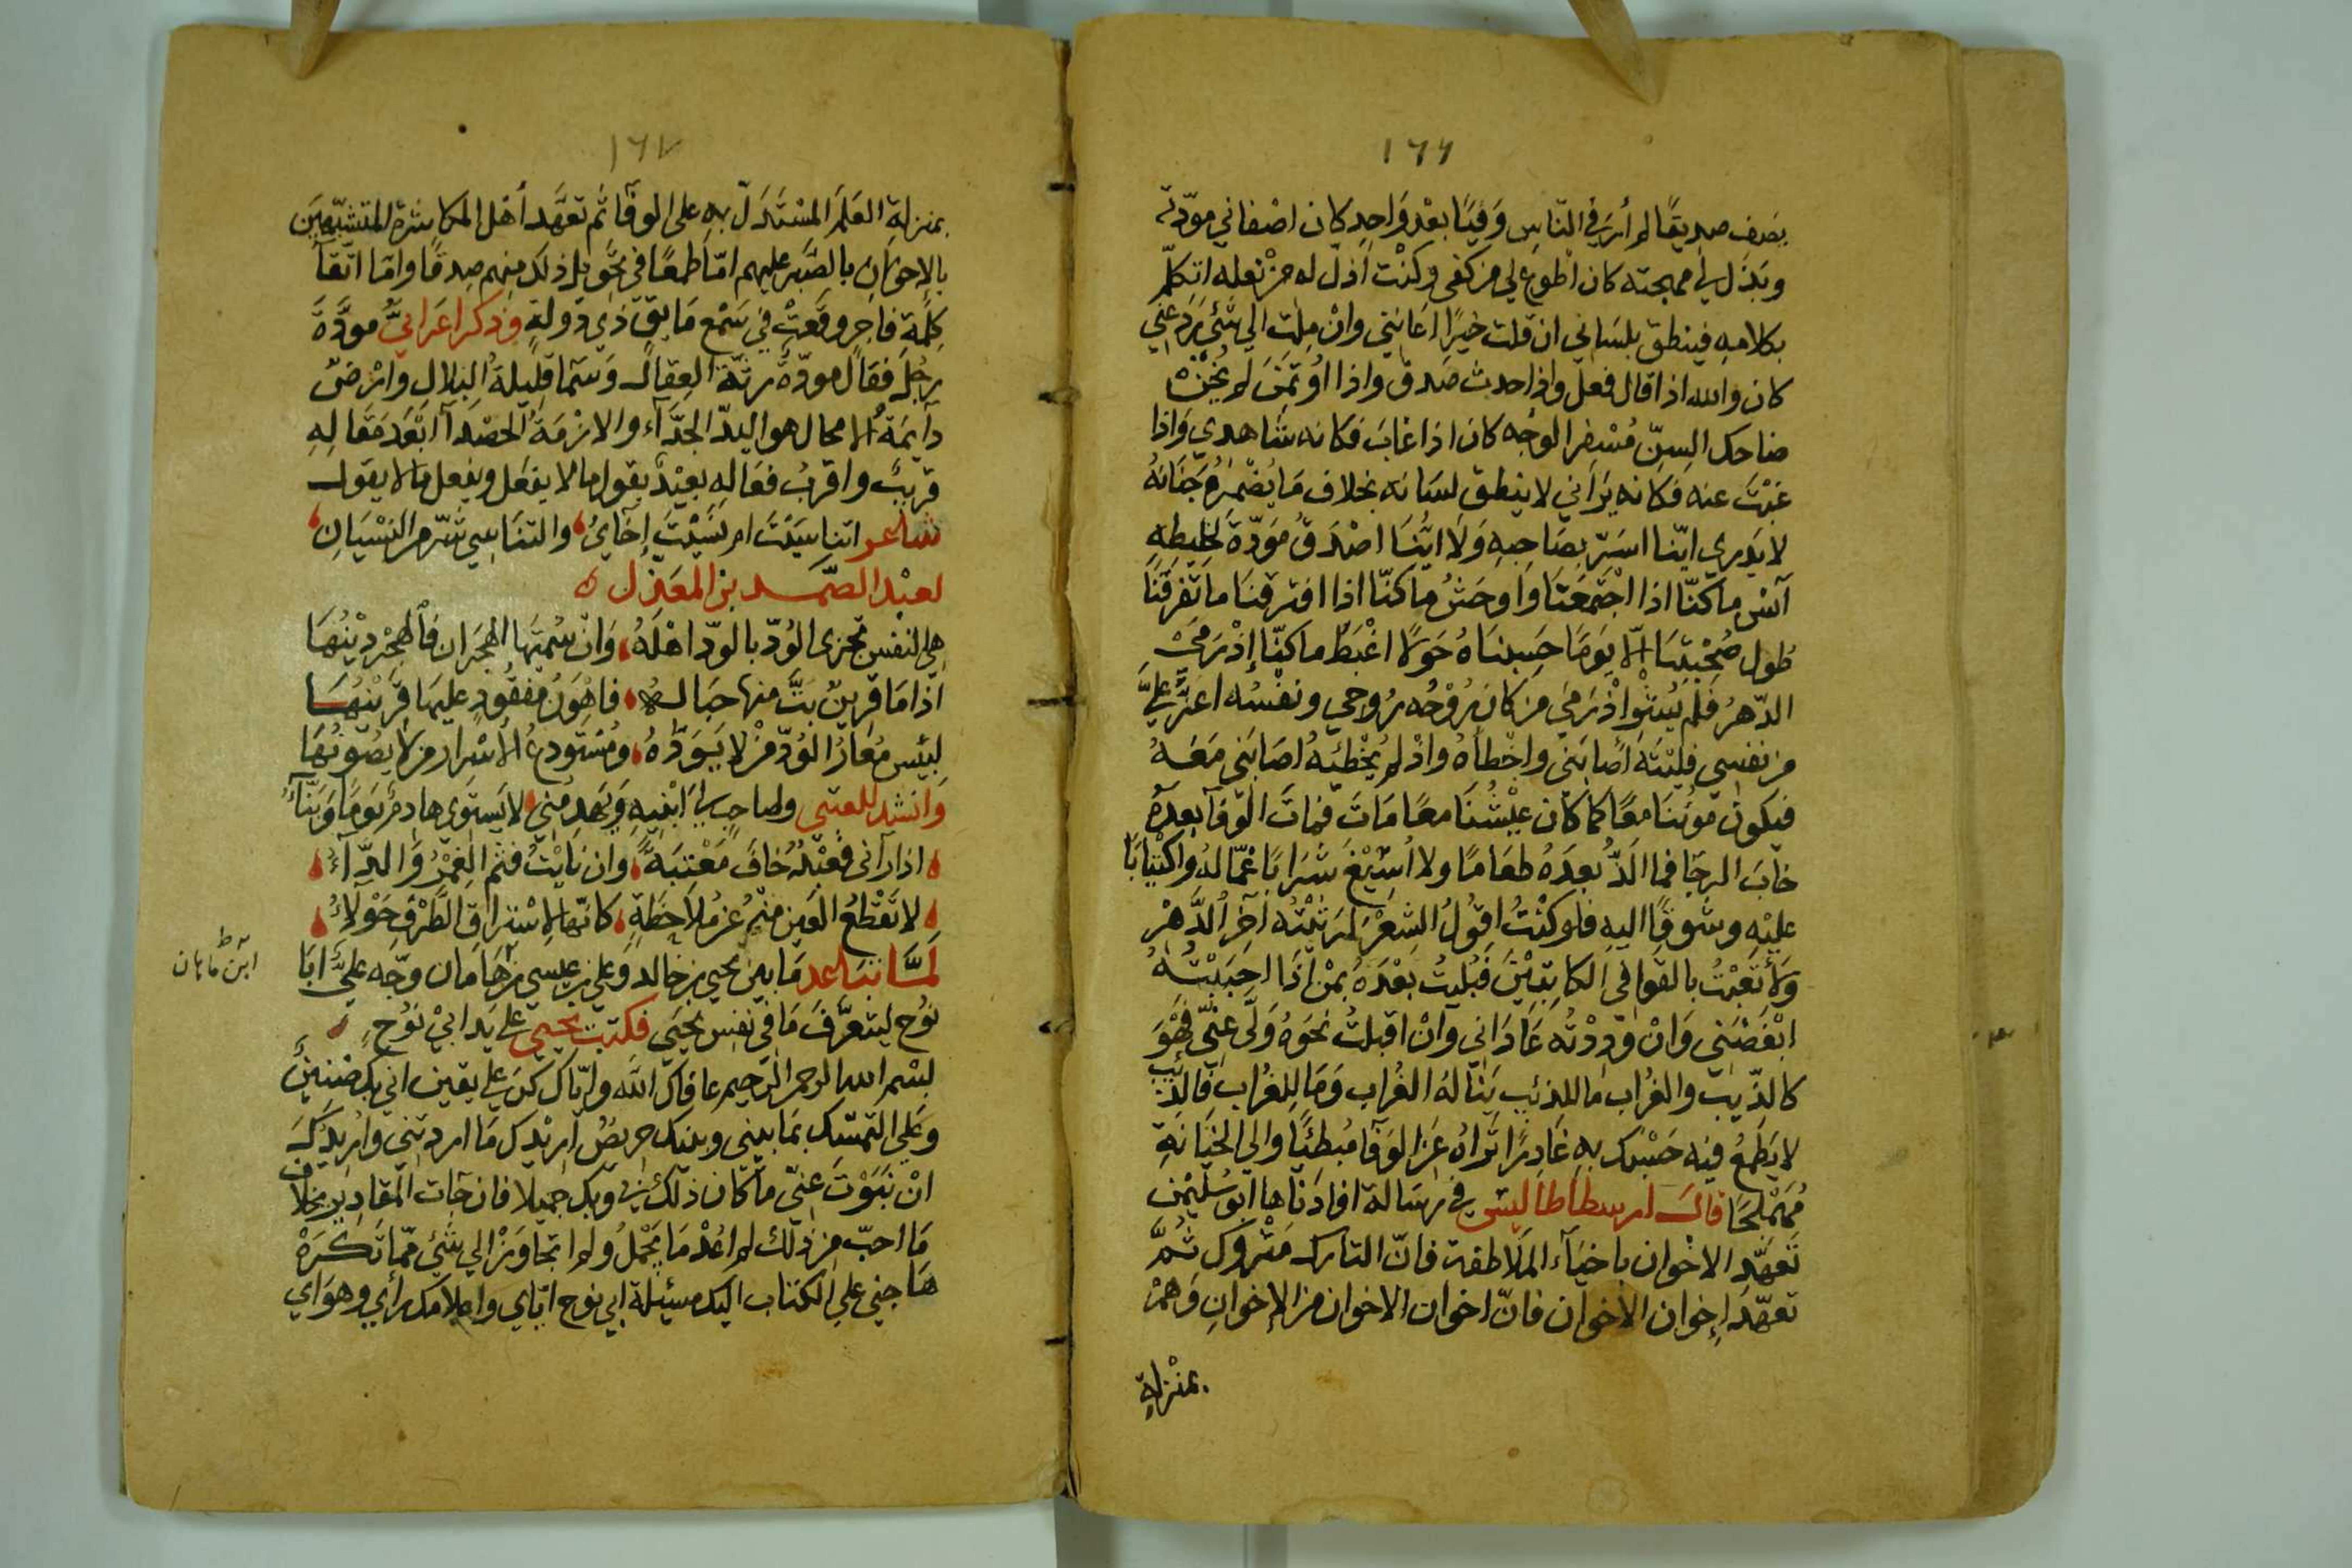 ١٦٦
يصف صديقًا لم أرَ في النّاسِ وَفيًا بعْد وَاحِدٍ كان اصْفاني مودّته
وبَذَل لي مهجته كان اطوع لي من كفي وكنْت أذلّ له من نعله اتكلّم
بكلامهِ فينطق بلسَاني ان قلت خيرًا اعَانني وانْ مِلت الي شَئٍ رَدَعني
كان والله اذا قال فعل واذا حدث صَدق واذا اؤتمِنَ لم يَخُنْ
ضاحك السِنّ مُسْفِر الوجْه كان اذا غابَ فكانه شَاهدي وَاذا
غبْتَ عنه فكانه يَرَاني لا ينطق لسَانه بخلاف مَا يُضْمِرُه جَنَانهُ
لا يَدري ايّنا اسَرّ بصَاحِبهِ وَلَا ايُّنَا اصْدَقُ مَوَدّةً لخليطِهِ
آنس ما كنّا اذا اجْتمَعْنَا وَاوحَشُ ما كنّا اذا افترقنَا مَا تَفَرقْنَا
طُول صُحْبتِنَا إلّا يَومًا حَسِبنَاهُ حَولًا اغْبَطَ ما كنّا إذْ رَمَىْ
الدّهرُ فلم يُشْوِ اذْ رَمَى من كان رُوْحُه رُوحي ونفْسُه اعَزُّ عَليَّ
من نفسِي فليْتَه أصَابَني واخْطَأه واذْ لم يُخْطِئهُ اصَابَني مَعَهُ
فيكون مَوتنَا معًا كما كان عيْشُنَا معًا مَاتَ فمَاتَ الوَفَآ بعدَهُ
خابَ الرجَا فما الَذّ بعدَهُ طعَامًا ولا اسيْغَ شَرَابًا غمّا لهُ واكتيابًا
عليْهِ وشَوقًا اليهِ فلو كنْتُ اقولُ الشِعْرَ لرثيْتُه آخر الدَّهْرِ
ولَأتعَبْتُ بالقوافي الكاتِبيْنَ فبُليتُ بعْدَهُ بمَنْ اذا احبَبْتُهُ
ابْغَضَني وَانْ وَدِدْتُه عَادَاني وَانْ اقبلتُ نحوَهُ وَلّى عنّي فهْوَ
كالذّيب والغُراب ما للذئبِ يَنَالهُ الغُراب وَمَا لِلغُراب فالذّيبُ
لا يَطمَعُ فيْه حَسْبُك بهِ غَادِرًا تَراهُ عَن الوَفَآ مُبطئًا والي الخيَانَةِ
مُهَمْلِجًا قالَ ارسطاطاليس في رسَالة افادَناها ابو سُليْمٰن
تَعهّدِ الاخْوان باحْيَآءِ المَلَاطفة فانّ التارك مَتْروك ثُمَّ
تعهّد إخوان الاخوَان فانّ اخوان الاخوان من الإخوانِ وَهمْ
بمنْزِلةِ
١٦٧
بمنزلةِ العَلَمِ المسْتَدَلّ بهِ على الوفَآ ثم تعهَّد أهْل المكاشرة المتشبّهيْن
بالاِخوَانِ بالصَّبر عليهم امّا طمعًا في تحوّل ذلك منهم صِدقًا وامّا اتّقآ
كلمةِ فاجرٍ وقعَتْ في سَمْع مَايقٍ ذي دَولةٍ وذكر اعرَابيٌّ مودَّة
رجُلٍ فقال مودّةٌ رثّة العِقالـ وَسَمآ قليلةُ البلالِ وارْضٌ
دآيمةُ الامحال هو اليد الجَذّآء والازْمَةُ الحَصْدَآ ابعَد مَقاله
قريبٌ واقربُ فعَالِه بعيْدٌ يقول ما لا يفعَل ويفعل مالا يقولـ
شاعر اتناسَيْتَ ام نَسِيْتَ إخَآئِ والتنَاسِي شَرّ من النسْيَانِ
لعبْد الصّمَد بن المعَذل
هي النفس تجزى الوُدّ بالودّ اهْلَهُ وَانْ سُمتَها الهجَران فالهجْر دِيْنُهَا
اذا مَا قرينٌ بَتَّ منها حبَالـهُ فاهْوَنُ مفقُودٍ عليهَا قَرينُهَـا
لبئسَ مُعَارُ الوُدّ منْ لا يَوَدّهُ ومُسْتَودعُ الأسْرار من لا يصُونُهَا
وَانشَد للعتبي ولي صاحب ابْنيهِ وَيَهدِمُني لا يستَوى هادِمٌ يومًا وَبَنّآءُ
اذا رآنى فعَبْدٌ خافَ مَعْتَبَةً وان نَايْتُ فثم الغمْزُ والدّآءُ
لا تقْطعُ العَين منهُ عَن مُلاحَظَةٍ كانّها لاِسْتراقِ الطَّرْفِ حَوْلَاءُ
لَمَّا تبَاعد مَا بين يحيى بن خالد وعلي بن عيسي بن هَامَان وجّه عليٌّ ابَا
نوُحٍ ليتعرَّفَ مَا في نفْسِ يحيَى فكتبَ يحيي علي يَدِ ابيْ نوُحٍ
بسْم الله الرحمن الرّحيم عافاك الله وايّاك كن على يقين اني بك ضَنينٌ
وعَلي التمسّك بمَا بيني وبينك حريصٌ اريْدك مَا اردتني وارُيدُكَ
انْ نَبَوْتَ عنّي ما كان ذلك بي وبك جميلا فان جَآت المقاديرُ بخلاف
مَا احبّ من ذلك لم اعْدُ مَا يَجْمُلُ ولم اتجاوَزْ الي شَئٍ ممّا تكـرَهْ
هَاجني علي الكتاب اليك مسئلة ابي نوح ايّاي واعلامك رأيي وهوَاي
ابن ماهان ط